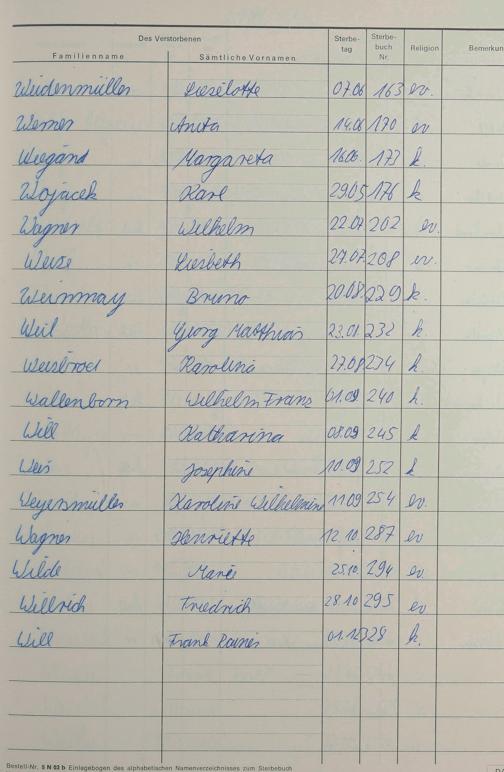 Des Verstorbenen Sterbe-tag Sterbe-buch Nr. Religion Bemerkun
Familienname Sämtliche Vornamen
Weidenmüller Lieselotte 07.06 163 ev.
Werner Anita 14.06 170 ev
Wiegand Margareta 16.06. 173 k.
Wojacek Karl 29.05 176 k
Wagner Wilhelm 22.07 202 ev.
Weise Liesbeth 27.07 208 ev.
Weinmay Bruno 20.08. 229 k.
Weil Georg Matthias 23.08 232 k
Weisbrod Karolina 27.08 234 k
Wallenborn Wilhelm Franz 01.09 240 k.
Will Katharina 08.09 245 k
Weis Josephine 10.09 252 k
Weyersmüller Karoline Wilhelmine 11.09 254 ev.
Wagner Henriette 12.10. 287 ev
Wilde Marie 25.10. 294 ev.
Willrich Friedrich 28.10 295 ev
Will Frank Rainer 01.12 328 k.
Bestell-Nr. S N 03 b Einlagebogen des alphabetischen Namenverzeichnisses zum Sterbebuch